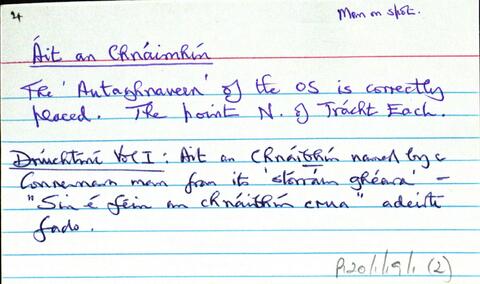 4
Man on spot.
Áit an Chnáimhín
The 'Autaghnaveen' of the OS is correctly
placed. The point N. of Trácht Each.
Driuchtíní Vol I: Áit an Chnáithín named by a
Connemara man from its 'storráin ghéara' –
"Sin é féin an cnáithín crua" adeirtí
fadó.
P120/1/19/1 (2)